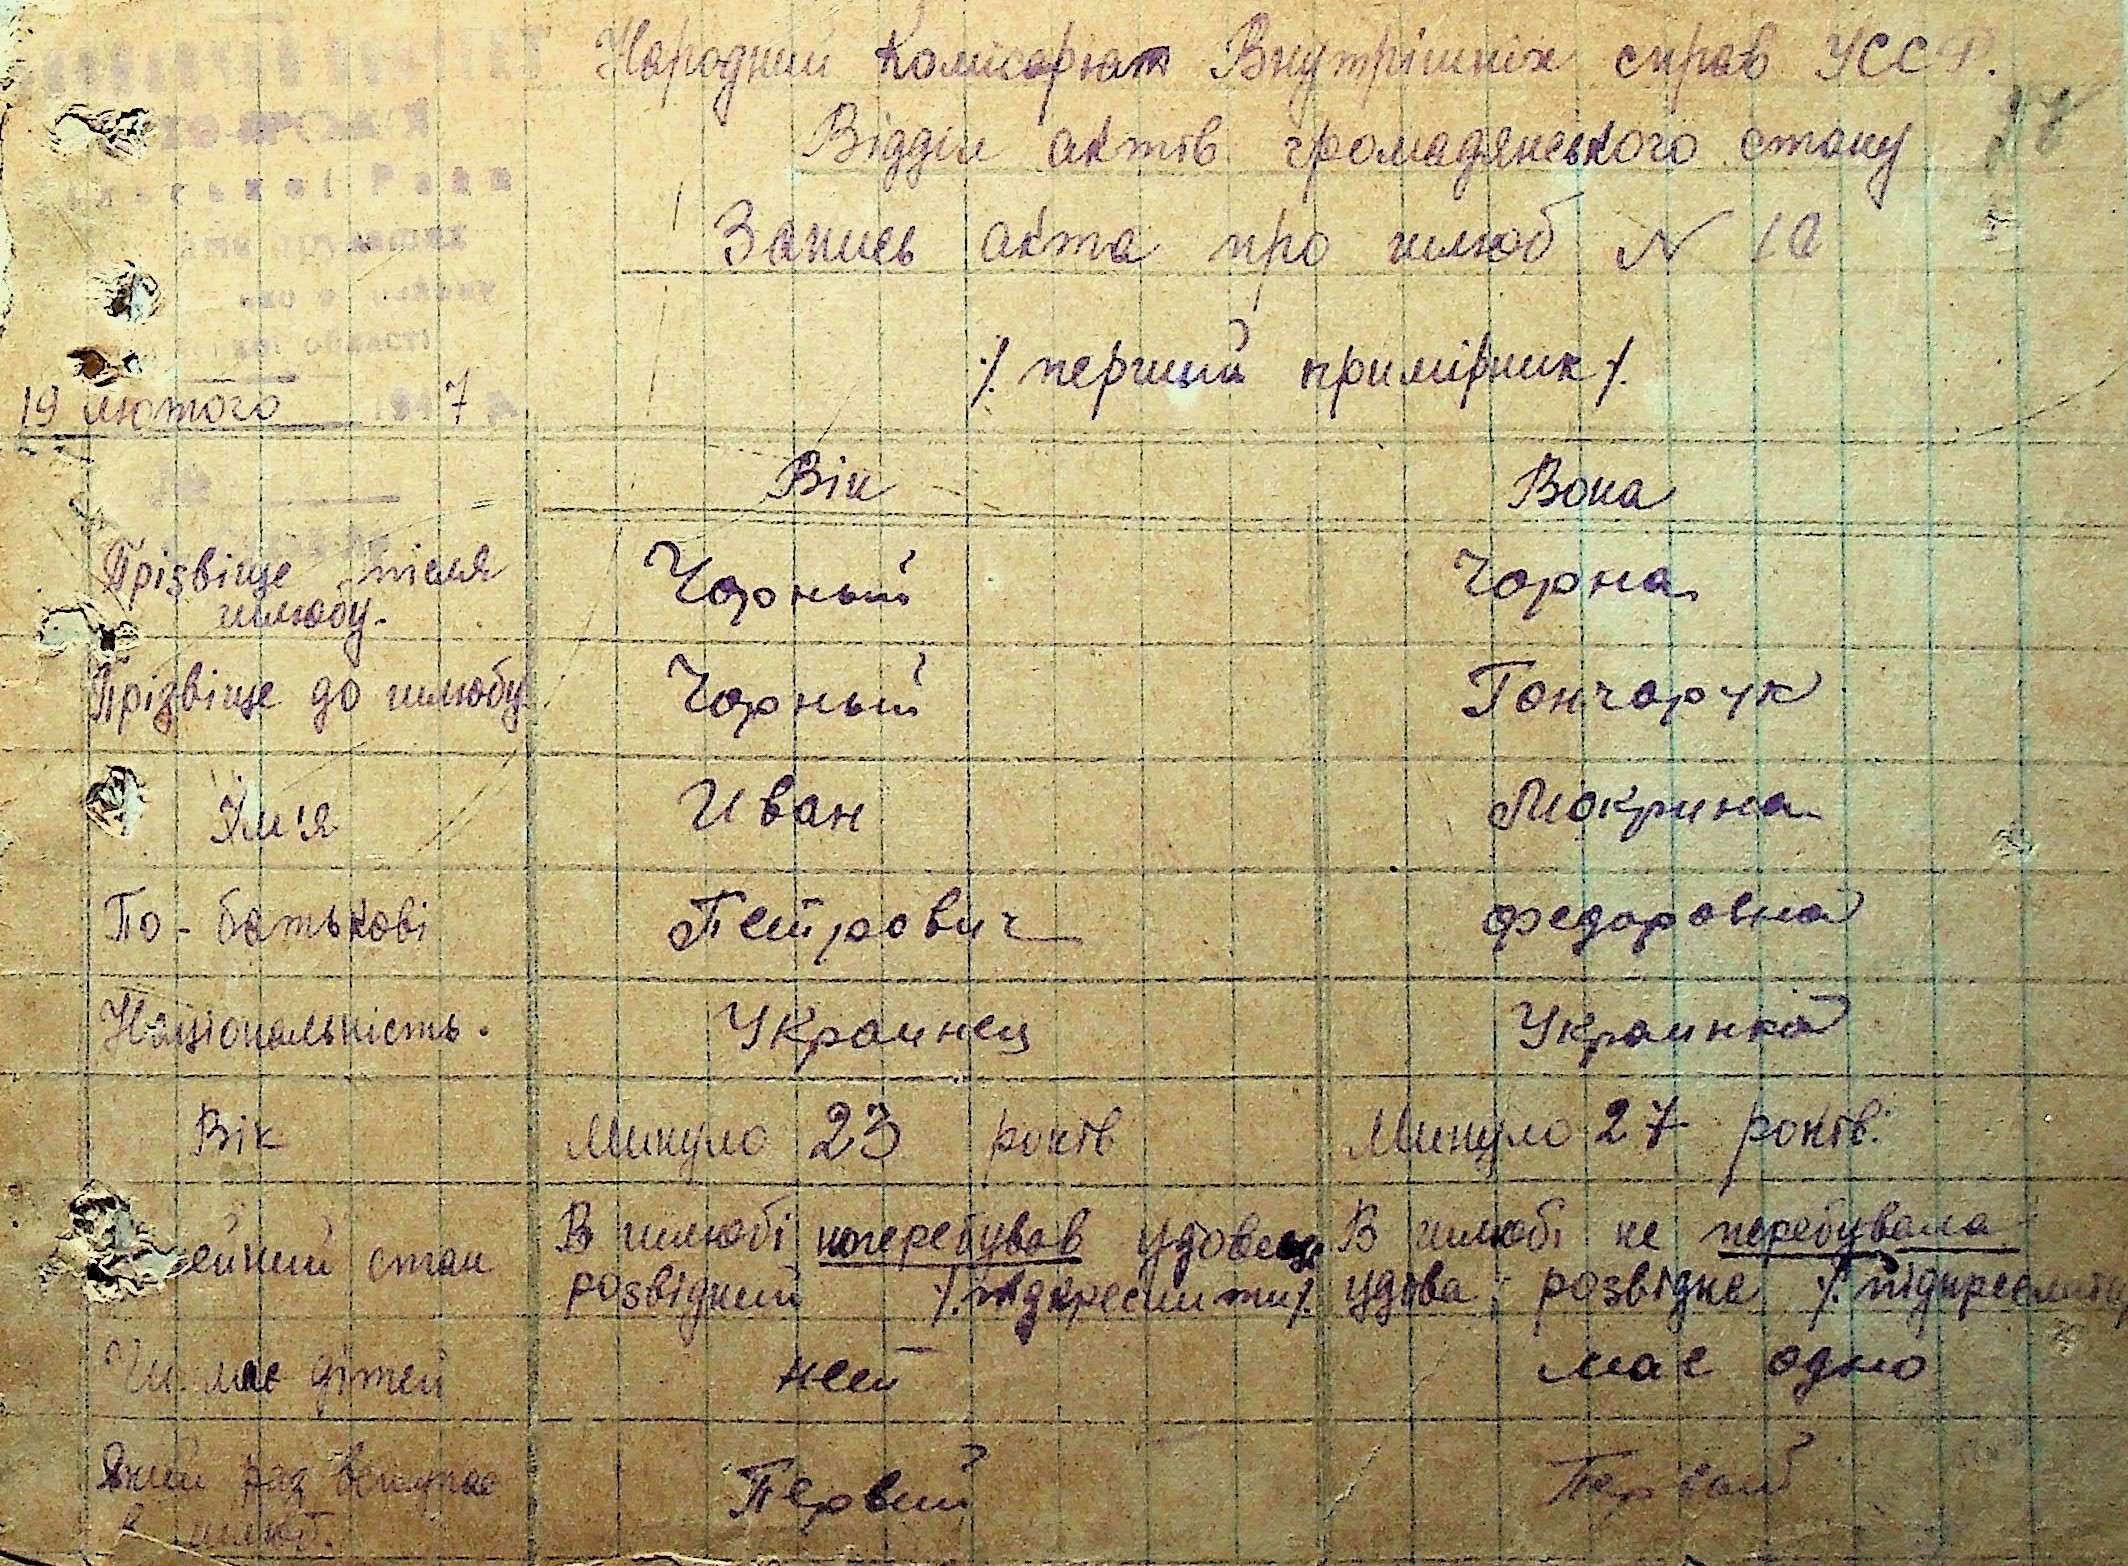 Народний Комісаріат Внутрішніх справ УССР.
Відділ актів громадянського стану
Запись акта про шлюб N 10
/. перший примірник /.
ОБЛАСТІ
19 лютого 1947 р.
Він Вона
Прізвіще після шлюбу. Чорный Чорна
Прізвіще до шлюбу Чорный Гончарук
Їм'я Иван Мокрина
По-батькові Петрович Федоровна
Національність. Украинец Украинка
Вік Минуло 23 років Минуло 27 років.
ейний стан В шлюбі неперебував удовець В шлюбі не перебувала
розвідний /. підкреслити /. удова, розвідна /. підкреслити
Чи має дітей нет має одно
Який раз вступає Первий Первый
в шлюб.